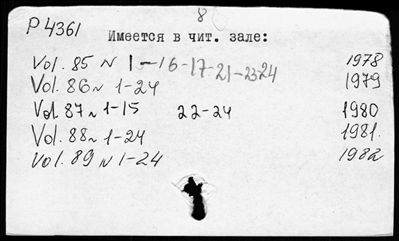 8
P4361
Имеется в чит. зале:
Vol. 85 N 1-16-17-21-23-24 1978
Vol. 86 N 1-24 1979
Vol 87 N 1-15 22-24 1980
Vol. 88 N 1-24 1981.
Vol. 89 N 1-24 1982